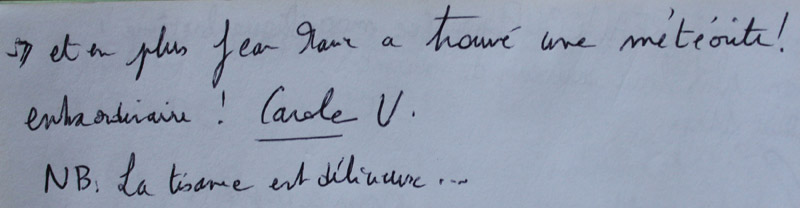 => et en plus Jean Marie a trouvé une météorite!
extraordinaire! Carole V.
NB: La tisane est délicieuse...